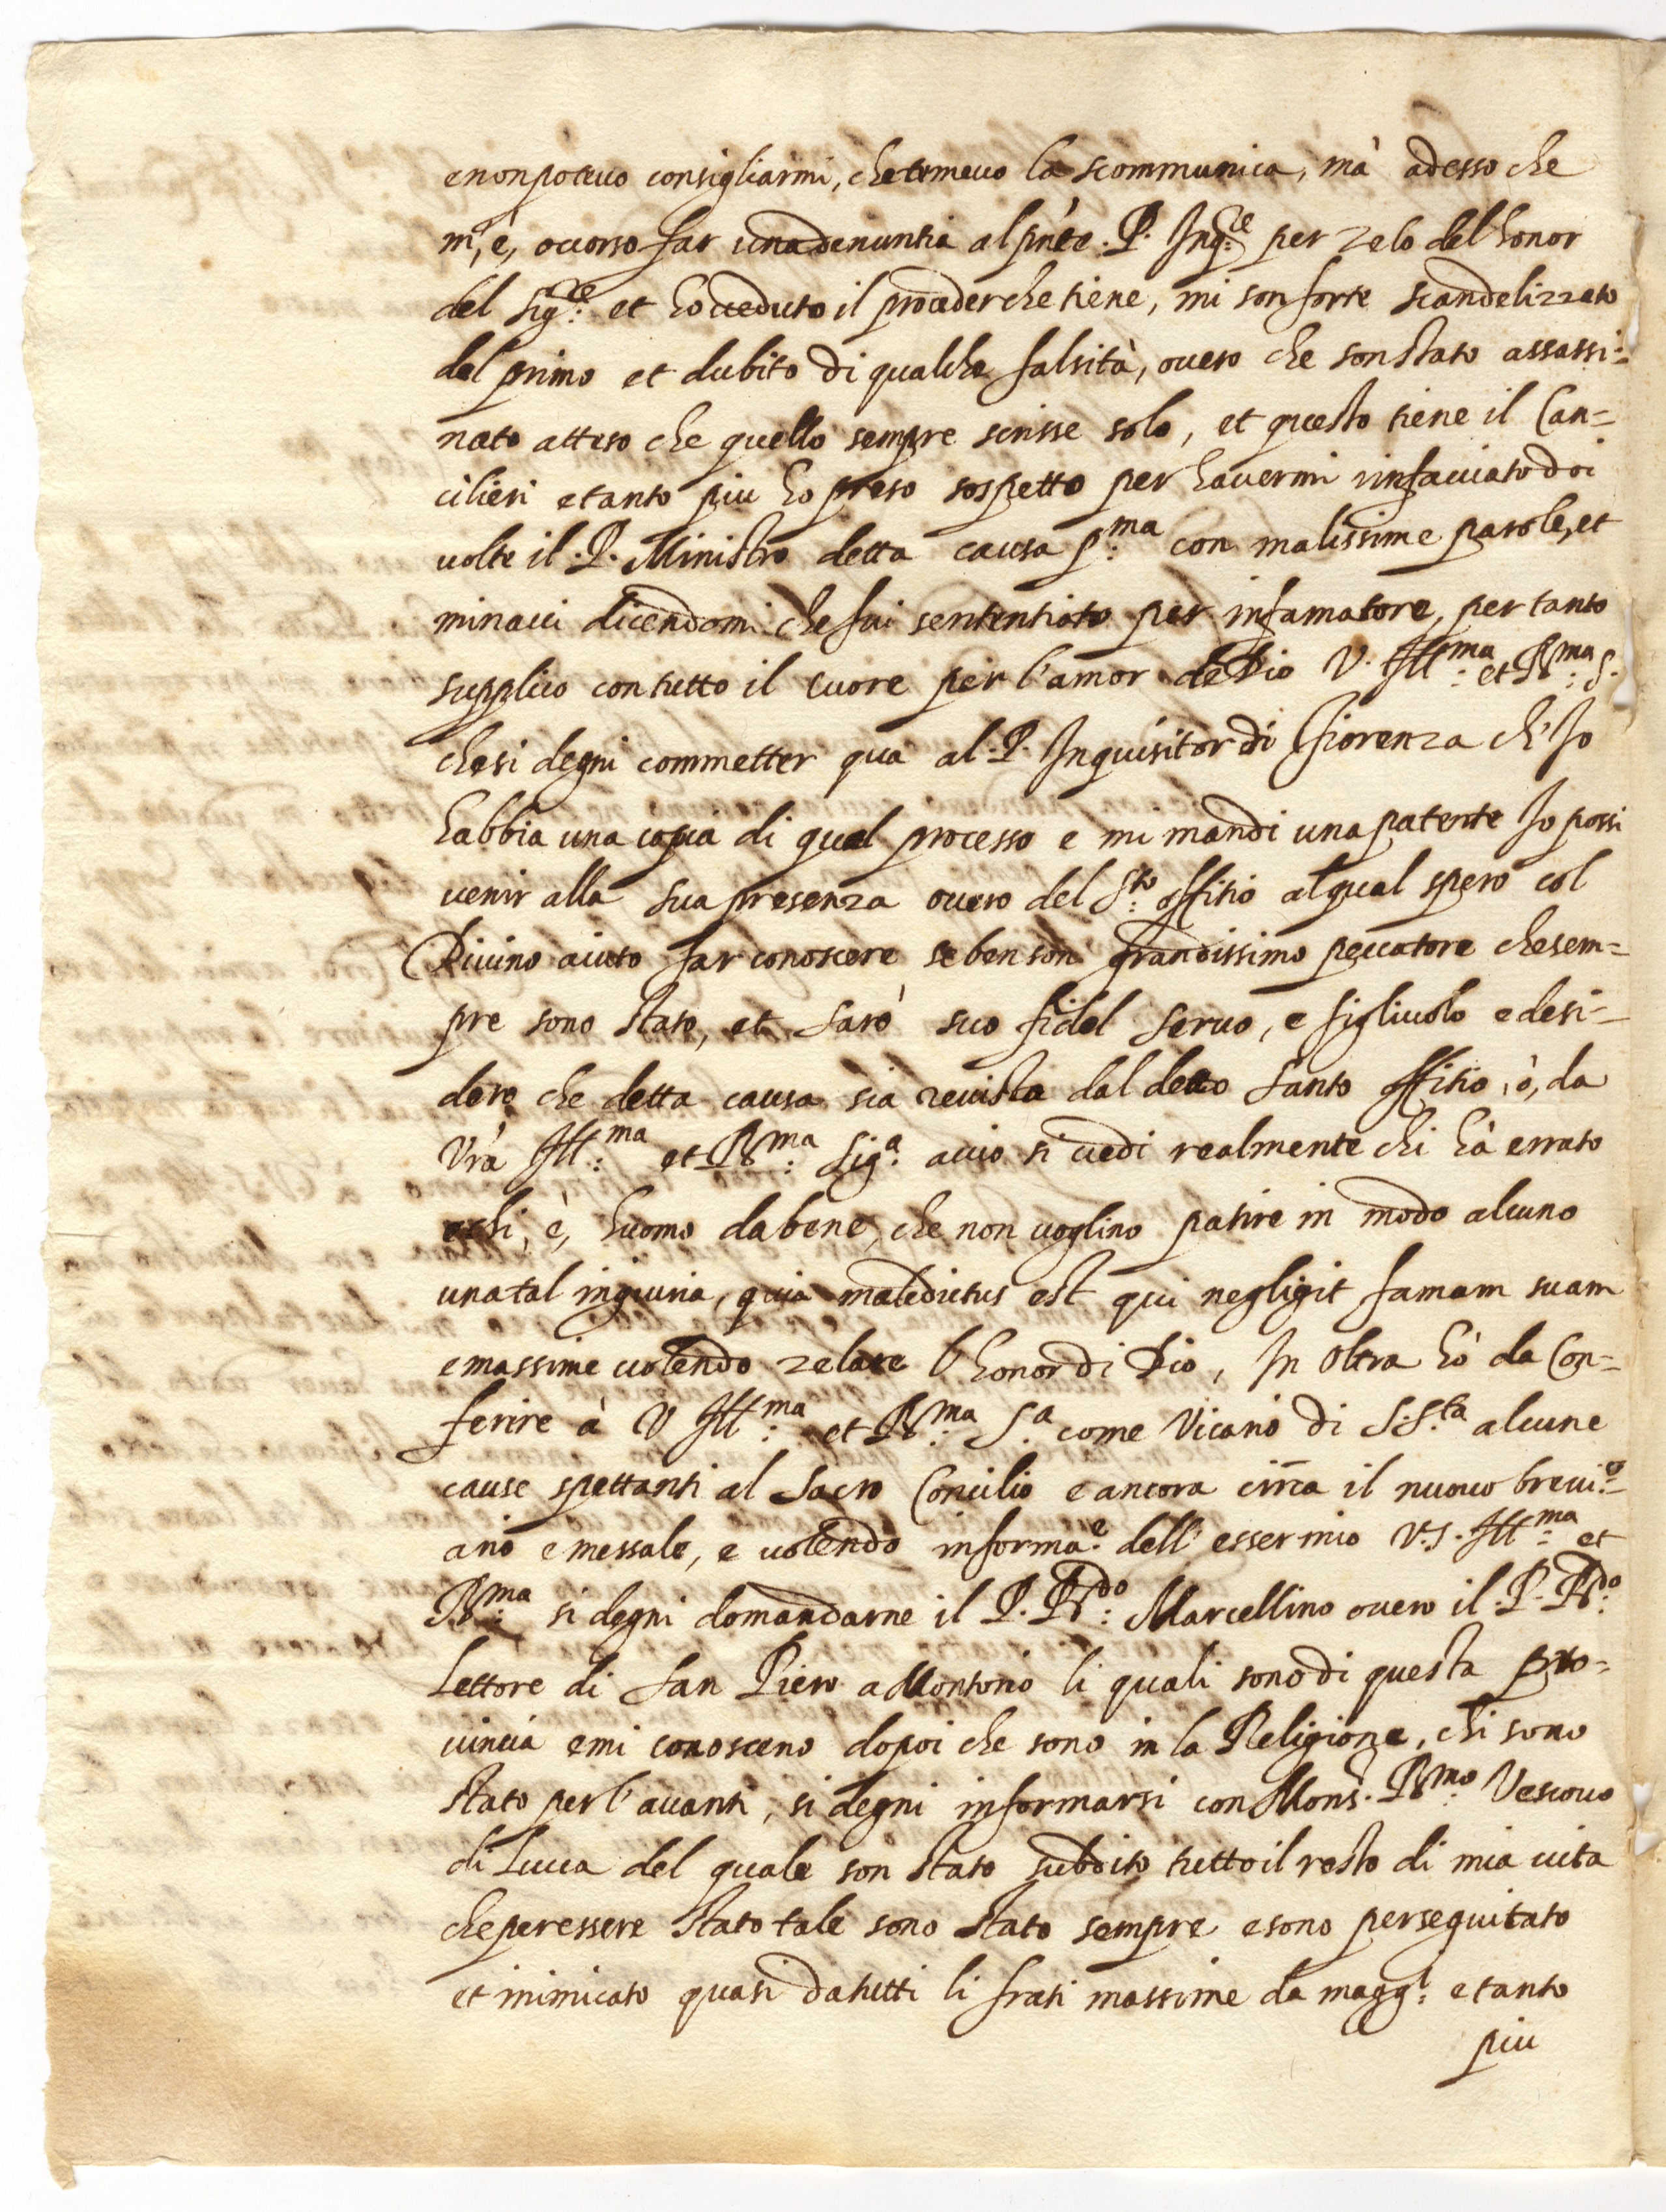 e non potevo consigliarmi, che temevo la scommunica, mà adesso che
m'è, occorso far una denuntia al pñte. P. Inq.re per zelo del honor
del Sig.re et ho veduto il proceder che tiene, mi son forte scandelizzato
del primo et dubito di qualche falsità, overo che son stato assassi=
nato atteso che quello sempre scrisse solo, et questo tiene il Can=
cilieri e tanto piu ho preso sospetto per havermi rinfacciato doi
volte il .P. Ministro detta causa p.ma con malissime parole, et
minacci dicendomi che fui sententiato per infamatore, per tanto
supplico con tutto il cuore per l'amor de Dio V. Ill.ma et R.ma S.
che si degni commetter qua al .P. Inquisitor di Fiorenza ch'Io
habbia una copia di quel processo e mi mandi una patente Io possi
venir alla sua presenza overo del S.to offitio al qual spero col
Divino aiuto far conoscere se ben son grandissimo peccatore che sem=
pre sono stato, et sarò suo fidel servo, e figliuolo e desi=
dero che detta causa sia revista dal detto Santo offitio, ò, da
Vrã Ill.ma et R.ma Sig.a accio si vedi realmente chi hà errato
e chi, è, huomo da bene, che non voglino patire in modo alcuno
una tal ingiuria, quia maledictus est qui negligit famam suam
e massime volendo zelare l'honor di Dio, In oltra hò da Con=
ferire à V Ill.ma et R.ma S.a come Vicario di S.S.ta alcune
cause spettanti al Sacro Concilio e ancora circa il nuovo brevi=
ario e messale, e volendo informa.e dell'esser mio V.S. Ill.ma et
R.ma si degni domandarne il P. R.do Marcellino overo il .P. R.do
Lettore di San Piero a Montorio li quali sono di questa pro=
vincia e mi conosceno dopoi che sono in la Religione, chi sono
stato per l'avanti, si degni informarsi con Mons. R.mo Vescovo
di Lucca del quale son stato subdito tutto il resto di mia vita
che per essere stato tale sono stato sempre e sono perseguitato
et inimicato quasi da tutti li frati massime da magg.i e tanto
piu